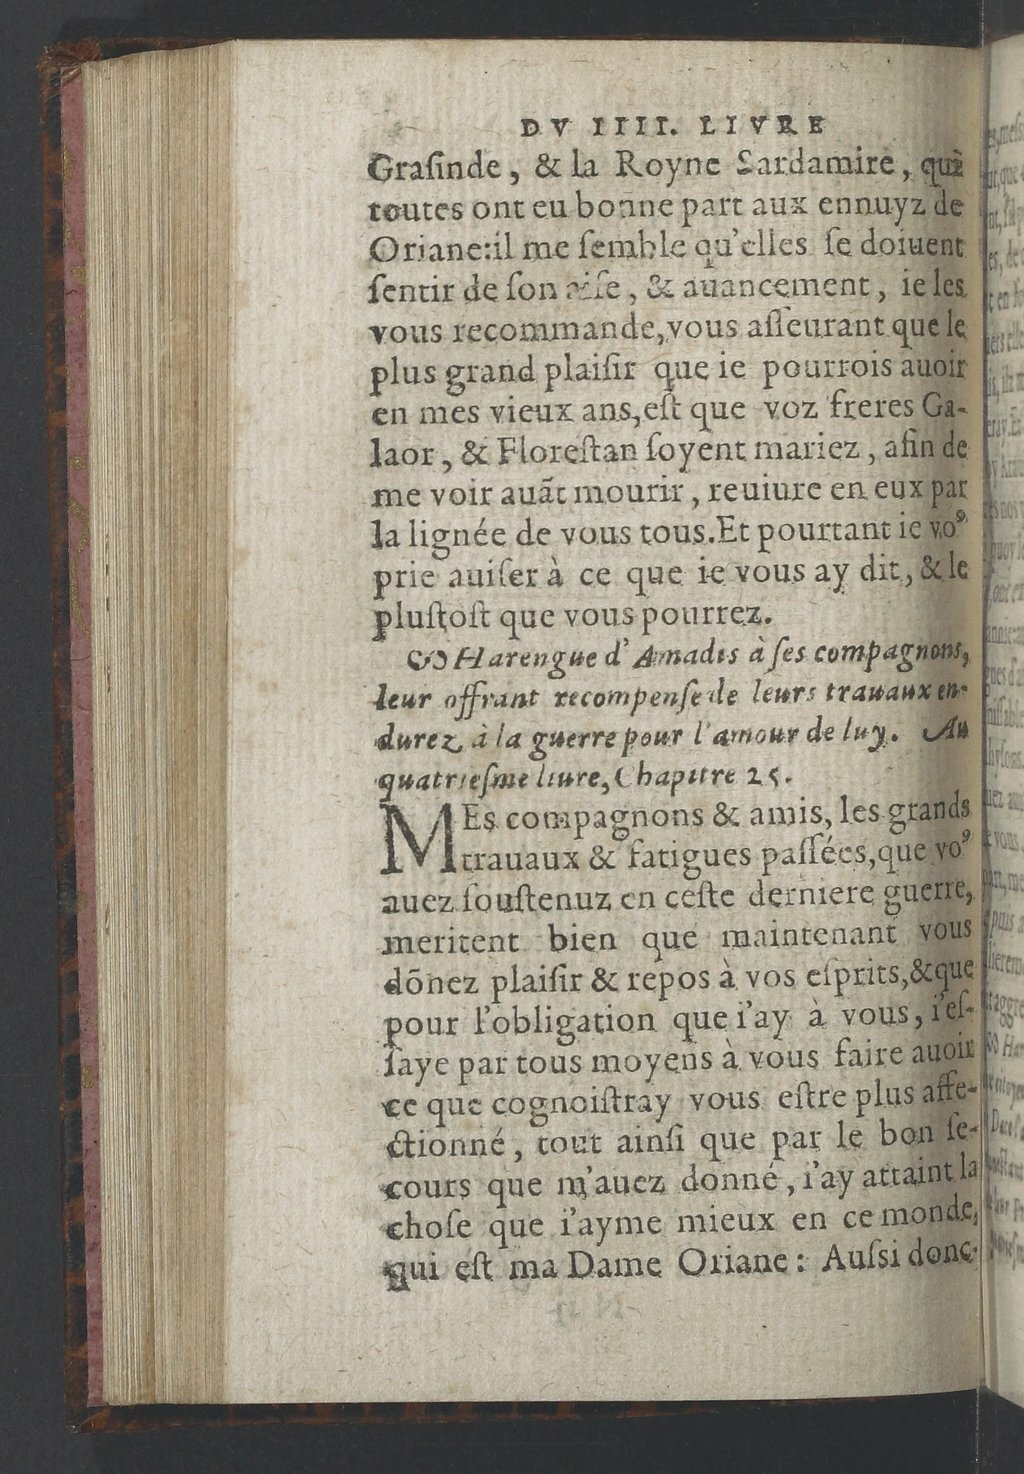 DV IIII. LIVRE
Graſinde, & la Royne Sardamire, que
toutes ont eu bonne part aux ennuyz de
Oriane:il me ſemble qu'elles ſe doiuent
ſentir de ſon aiſe, & auancement, ie les
vous recommande,vous aſſeurant que le
plus grand plaiſir que ie pourrois auoir
en mes vieux ans,eſt que voz freres Ga-
laor, & Floreſtan ſoyent mariez, afin de
me voir auãt mourir, reuiure en eux par
la lignée de vous tous.Et pourtant ie voꝰ
prie auiſer à ce que ie vous ay dit, & le
pluſtoſt que vous pourrez.
Harengue d'Amadis à ſes compagnons,
leur offrant recompenſe de leurs trauaux en-
durez à la guerre pour l'amour de luy. Au
quatrieſme liure, Chapitre 25.
MEs compagnons & amis, les grands
trauaux & fatigues paſſées,que voꝰ
auez ſouſtenuz en ceſte derniere guerre,
meritent bien que maintenant vous
dõnez plaiſir & repos à vos eſprits,&que
pour l'obligation que i'ay à vous, i'eſ-
ſaye par tous moyens à vous faire auoir
ce que cognoiſtray vous eſtre plus affe-
ctionné, tout ainſi que par le bon ſe-
cours que m'auez donné, i'ay attaint la
choſe que i'ayme mieux en ce monde,
qui eſt ma Dame Oriane: Auſsi donc-